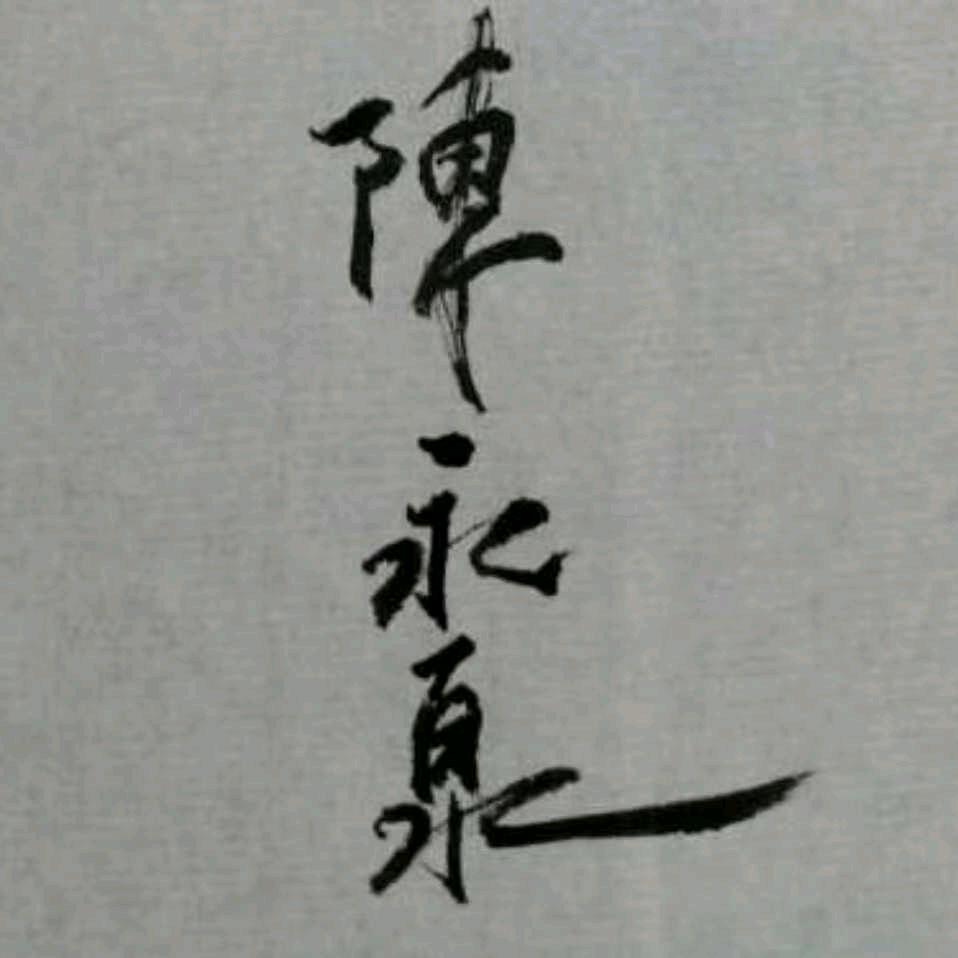 陳永泉